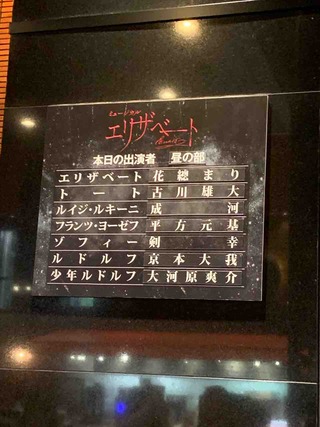 ミュージカル
エリザベート
本日の出演者 昼の部
エリザベート 花總まり
トート 古川雄大
ルイジ・ルキーニ 成河
フランツ・ヨーゼフ 平方元基
ゾフィー 剣幸
ルドルフ 京本大我
少年ルドルフ 大河原爽介